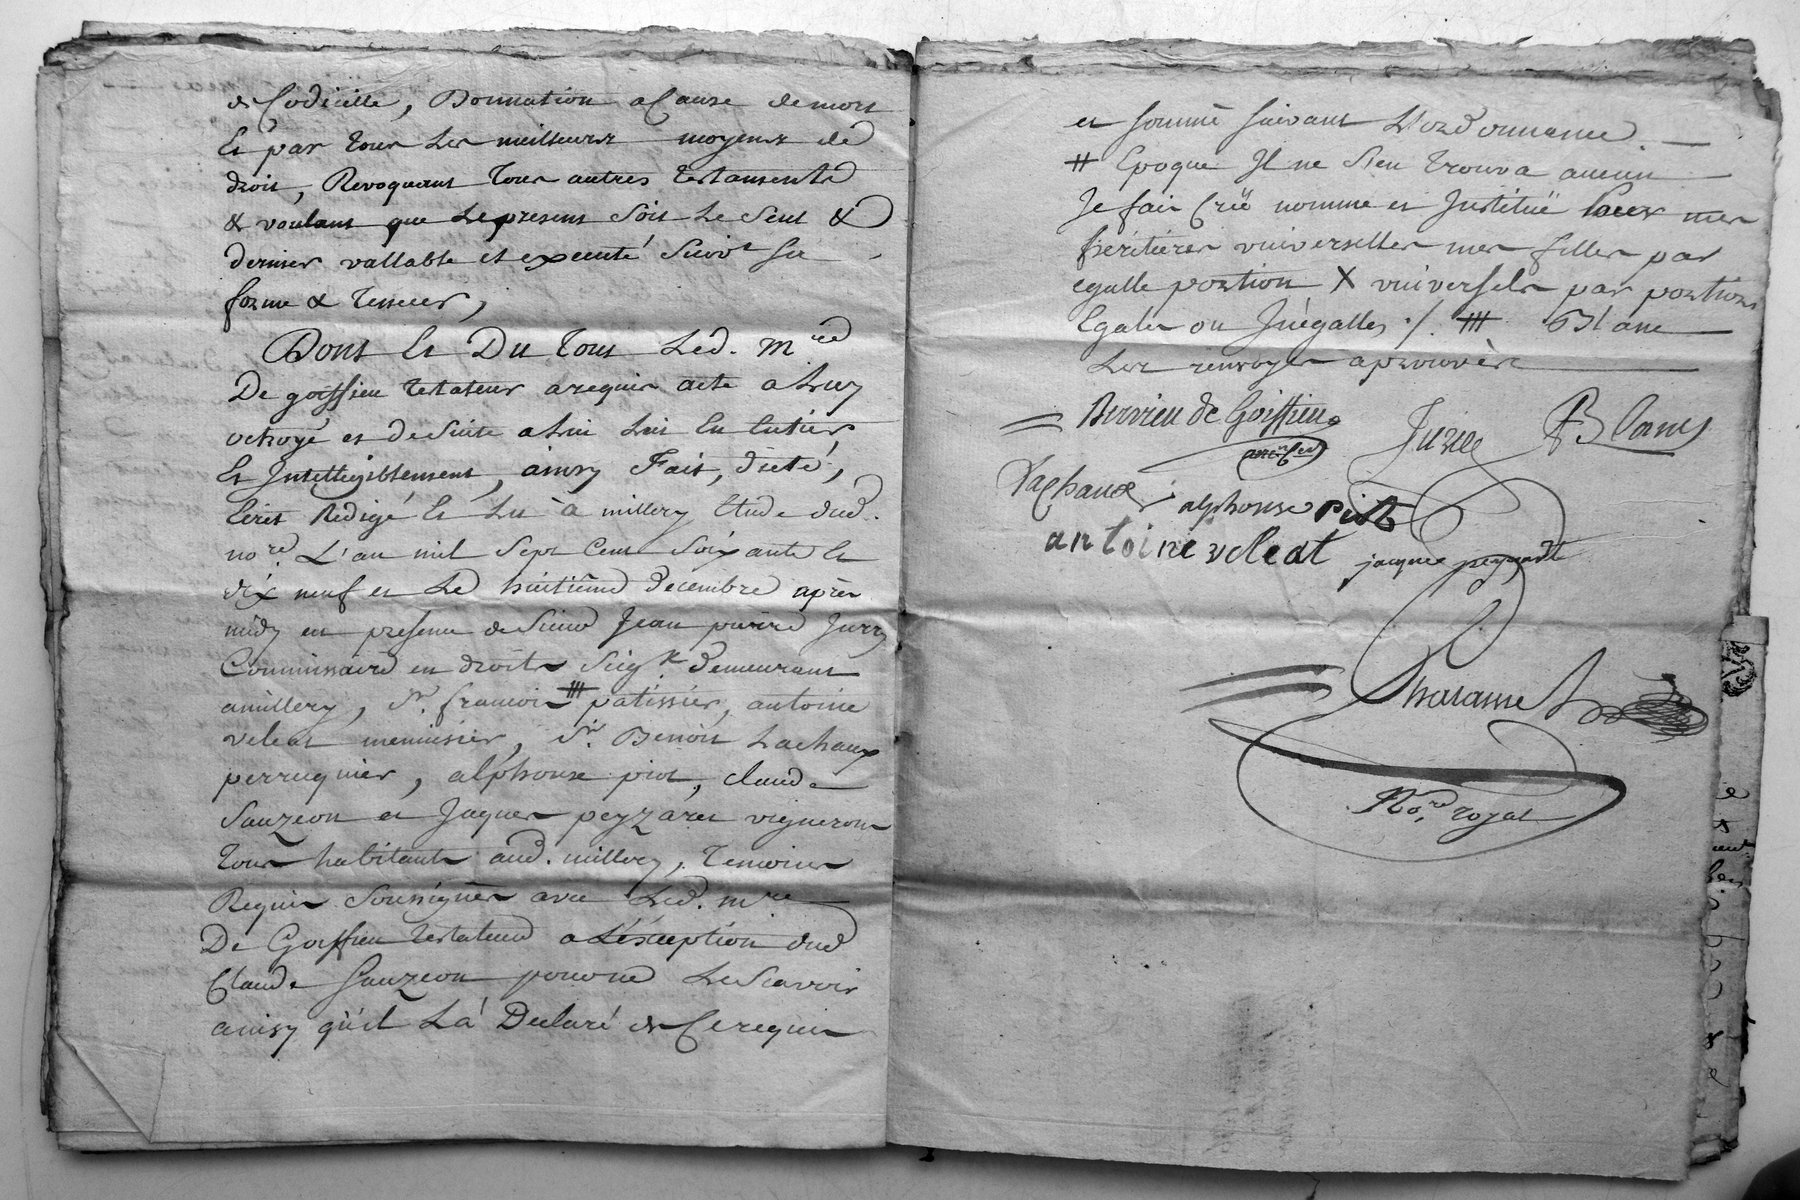 de Codicille, Donnation a Cause de mort
Et par tous Les meilleurs moyens de
droit, Revoquant Tous autres testaments
& voulant que Le present soit Le seul &
dernier vallable et executé suivt sa
forme & teneur,
Dont Et Du tout Led. mre
De goiffieu testateur a requis acte a Luy
octroyé et de suite a Lui Lu En Entier
Et Intelligiblement, ainsy Fait, dicté,
Ecrit Rédigé Et Lu à millery Etude dud.
nore. L'an mil sept Cent soixante et
dix neuf et Le huitiéme decembre après
midy en presence de sieur Jean pierre Jurry
Commissaire en droits seigx demeurant
a millery, sr. francois ⧻ patissier, antoine
veleat menuisier, sr. Benoit Lachaux
perruquier, alphonse piot, claude
Sauzeon et Jaques peyzaret vignerons
tous habitants aud. millery, temoins
Requis soussignés avec Led. mre
De Goiffieu testateur a L'exception dud
Claude Sauzeon pour ne Le scavoir
ainsy qu'il L'a Declaré de Ce requis
et sommé suivant L'ordonnance.
# Epoque Il ne s'en trouva aucun
Je fais Créé nomme et Institué mes
heritieres universelles mes filles par
egalle portion X universels par portions
Egales ou Inégalles ./. ⧻ Blanc
Les renvoyes aprouvès
Berrieu de Goiffieu
Jurie
Blanc
Lachaux
alphonse piot
antoine veleat
jacque peyzaret
Charasse
Nore. royal